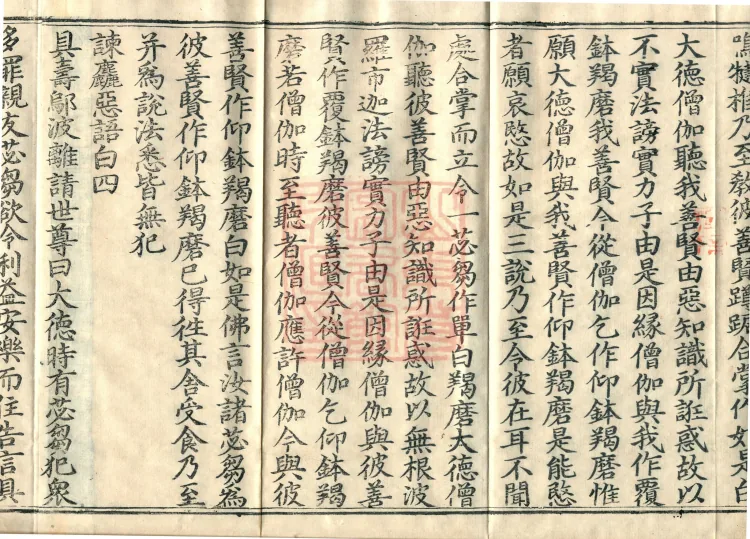 鳴犍稚乃至教彼善賢蹲踞合掌作如是白
大德僧伽聽我善賢由惡知識所誑惑故以
不實法謗實力子由是因緣僧伽與我作覆
鉢羯磨我善賢今從僧伽乞作仰鉢羯磨惟
願大德僧伽與我善賢作仰鉢羯磨是能愍
者願哀愍故如是三說乃至令彼在耳不聞
處合掌而立令一苾芻作單白羯磨大德僧
伽聽彼善賢由惡知識所誑惑故以無根波
羅市迦法謗實力子由是因緣僧伽與彼善
賢作覆鉢羯磨彼善賢今從僧伽乞仰鉢羯
磨若僧伽時至聽者僧伽應許僧伽今與彼
善賢作仰鉢羯磨白如是佛言汝諸苾芻為
彼善賢作仰鉢羯磨已得往其舍受食乃至
并為說法悉皆無犯
諫麤惡語白四
具壽鄔波離請世尊曰大德時有苾芻犯眾
多罪親友苾芻欲令利益安樂而住告言具